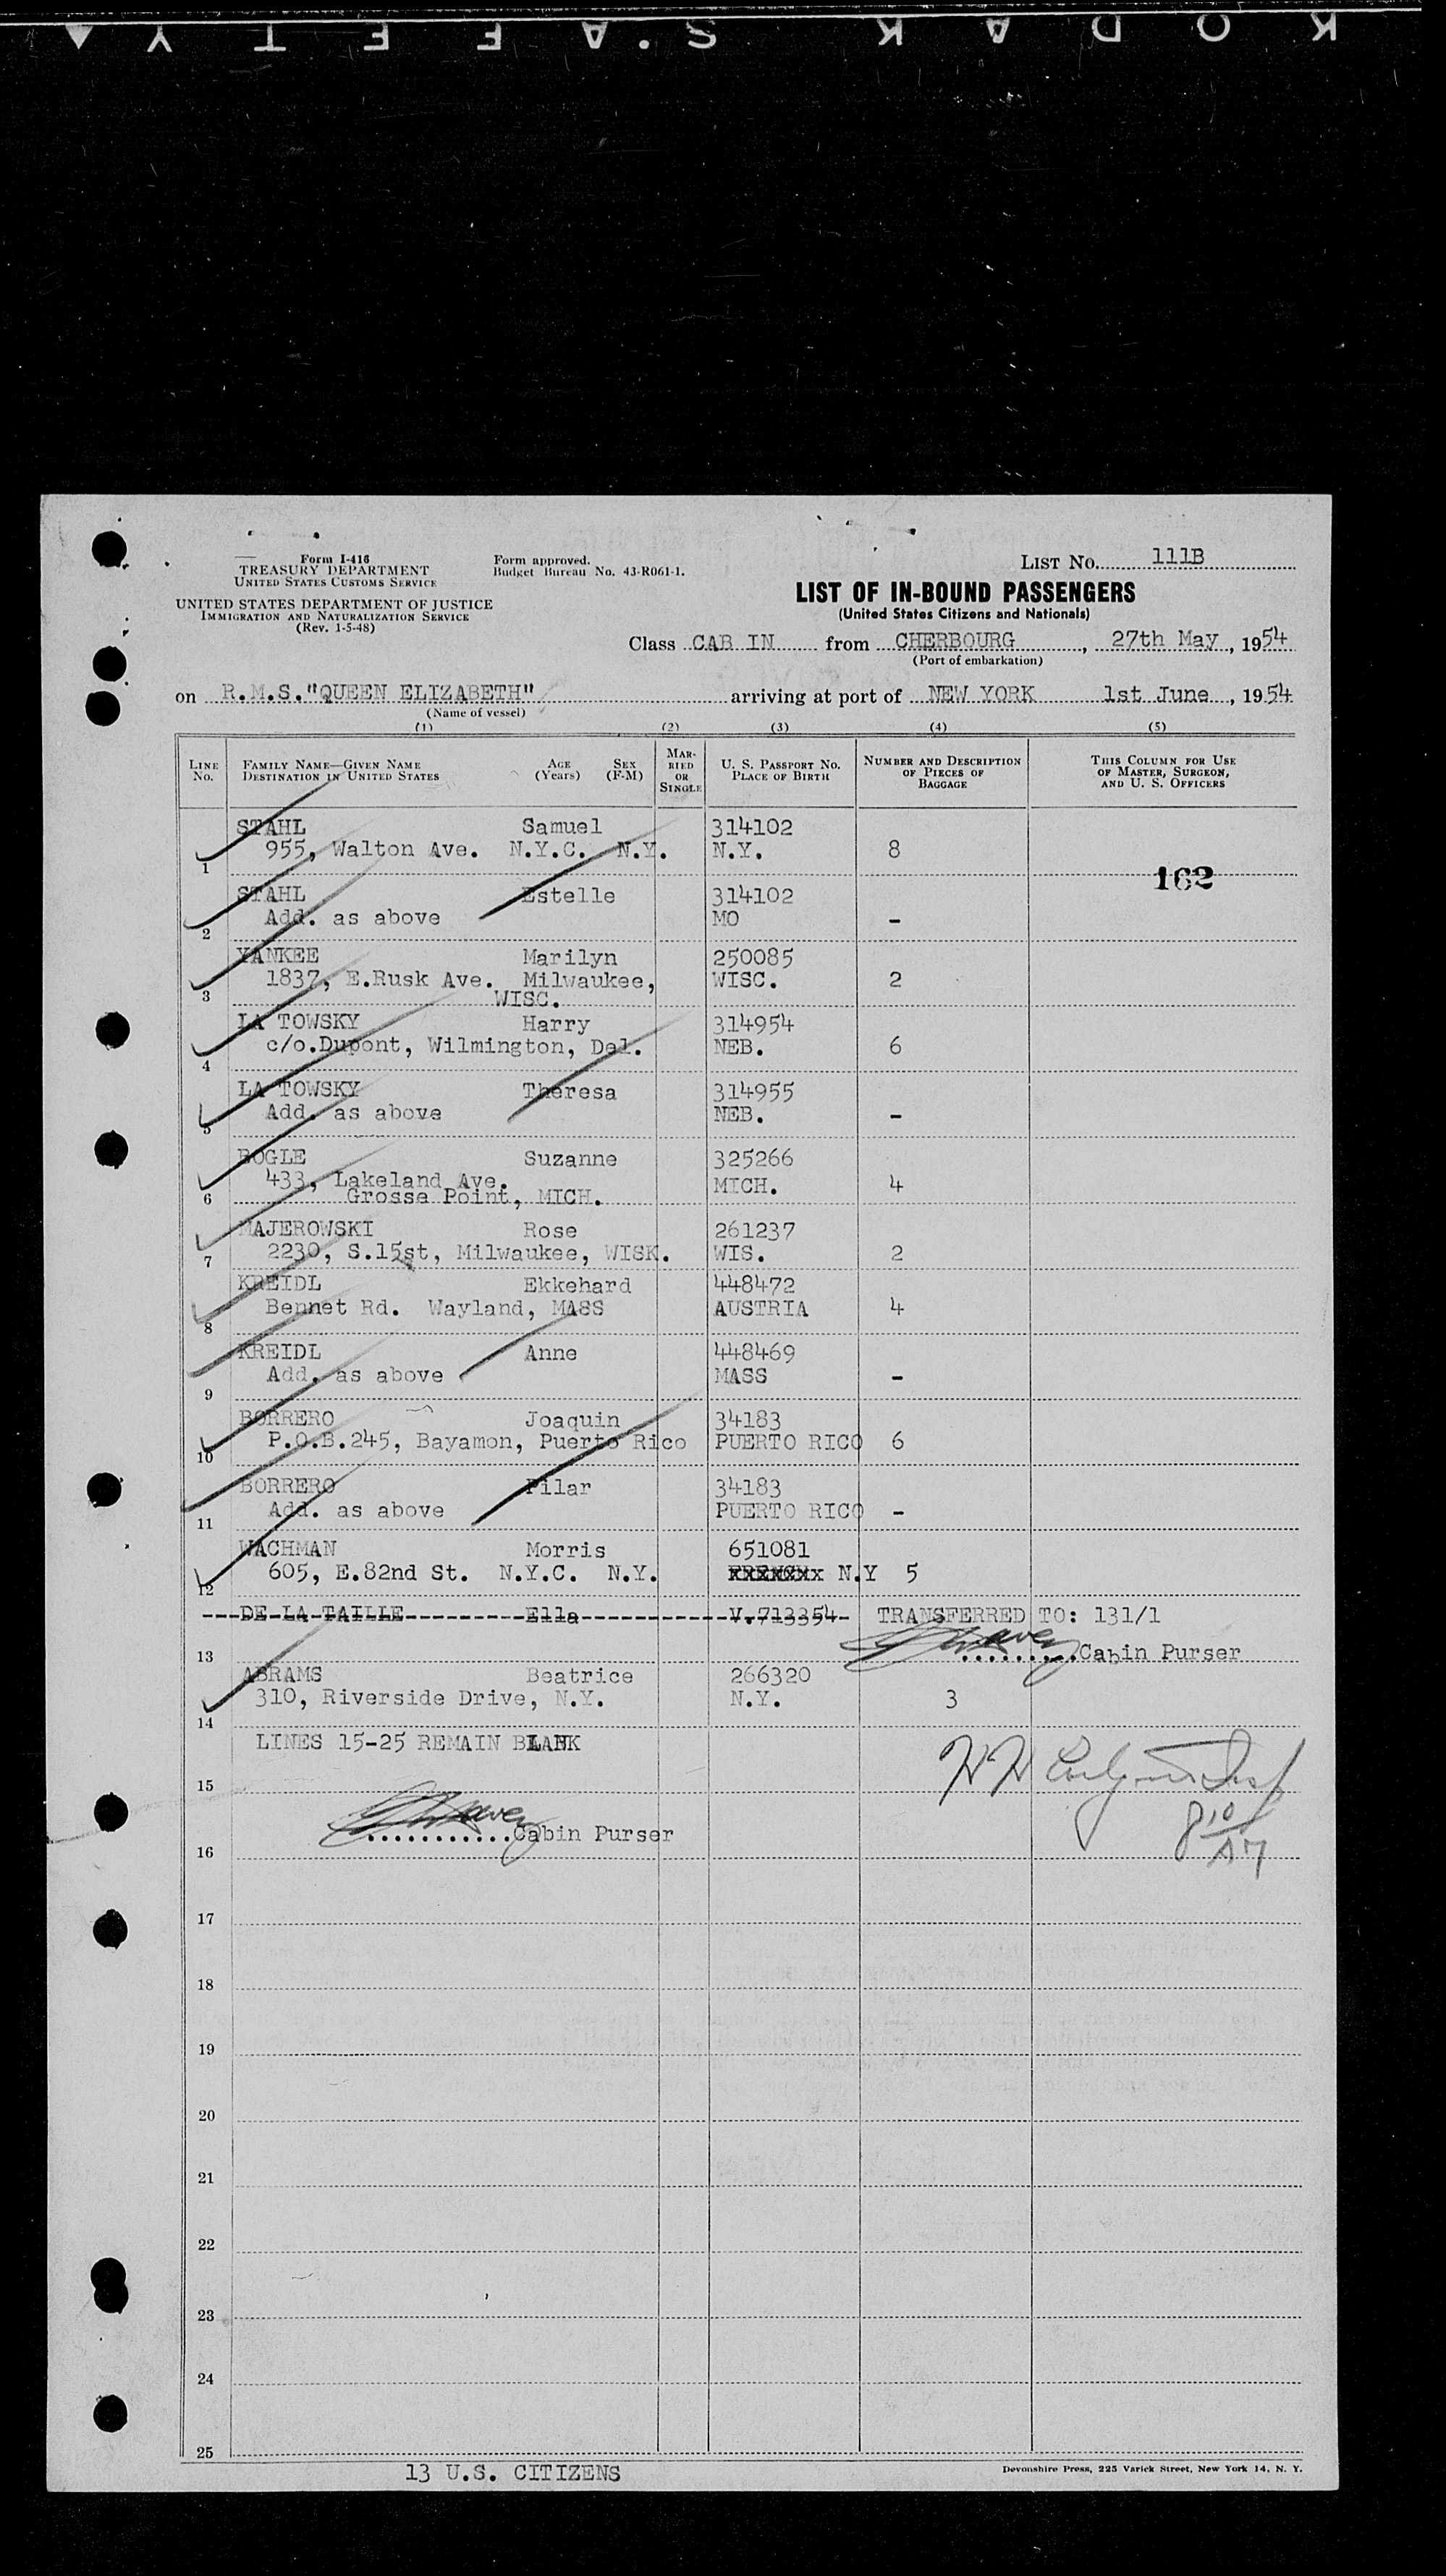 KODAK S.A F E T Y
Form I-416
TREASURY DEPARTMENT
UNITED STATES CUSTOMS SERVICE
UNITED STATES DEPARTMENT OF JUSTICE
IMMIGRATION AND NATURALIZATION SERVICE
(Rev. 1-5-48)
Form approved.
Budget Bureau No. 43-R061-1.
LIST No. 111B
LIST OF IN-BOUND PASSENGERS
(United States Citizens and Nationals)
Class CABIN from CHERBOURG, 27th May, 1954
(Port of embarkation)
on R.M.S."QUEEN ELIZABETH" arriving at port of NEW YORK 1st June, 1954
(Name of vessel)
(1) (2) (3) (4) (5)
LINE No. FAMILY NAME—GIVEN NAME DESTINATION IN UNITED STATES AGE (Years) SEX (F-M) MARRIED OR SINGLE U. S. PASSPORT No. PLACE OF BIRTH NUMBER AND DESCRIPTION OF PIECES OF BAGGAGE THIS COLUMN FOR USE OF MASTER, SURGEON, AND U. S. OFFICERS
STAHL Samuel 314102
1 955, Walton Ave. N.Y.C. N.Y. N.Y. 8
162
STAHL Estelle 314102
2 Add. as above MO -
YANKEE Marilyn 250085
3 1837, E.Rusk Ave. Milwaukee, WISC. 2
WISC.
LA TOWSKY Harry 314954
4 c/o.Dupont, Wilmington, Del. NEB. 6
LA TOWSKY Theresa 314955
5 Add. as above NEB. -
BOGLE Suzanne 325266
6 433, Lakeland Ave. MICH. 4
Grosse Point, MICH.
MAJEROWSKI Rose 261237
7 2230, S.15st, Milwaukee, WISK. WIS. 2
KREIDL Ekkehard 448472
8 Bennet Rd. Wayland, MASS AUSTRIA 4
KREIDL Anne 448469
9 Add. as above MASS -
BORRERO Joaquin 34183
10 P.O.B.245, Bayamon, Puerto Rico PUERTO RICO 6
BORRERO Pilar 34183
11 Add. as above PUERTO RICO -
WACHMAN Morris 651081
12 605, E.82nd St. N.Y.C. N.Y. N.Y 5
DE LA TAILLE Ella V.713354 TRANSFERRED TO: 131/1
13 Cabin Purser
ABRAMS Beatrice 266320
14 310, Riverside Drive, N.Y. N.Y. 3
LINES 15-25 REMAIN BLANK
15
Cabin Purser
16
17
18
19
20
21
22
23
24
25
13 U.S. CITIZENS
Devonshire Press, 225 Varick Street, New York 14, N. Y.